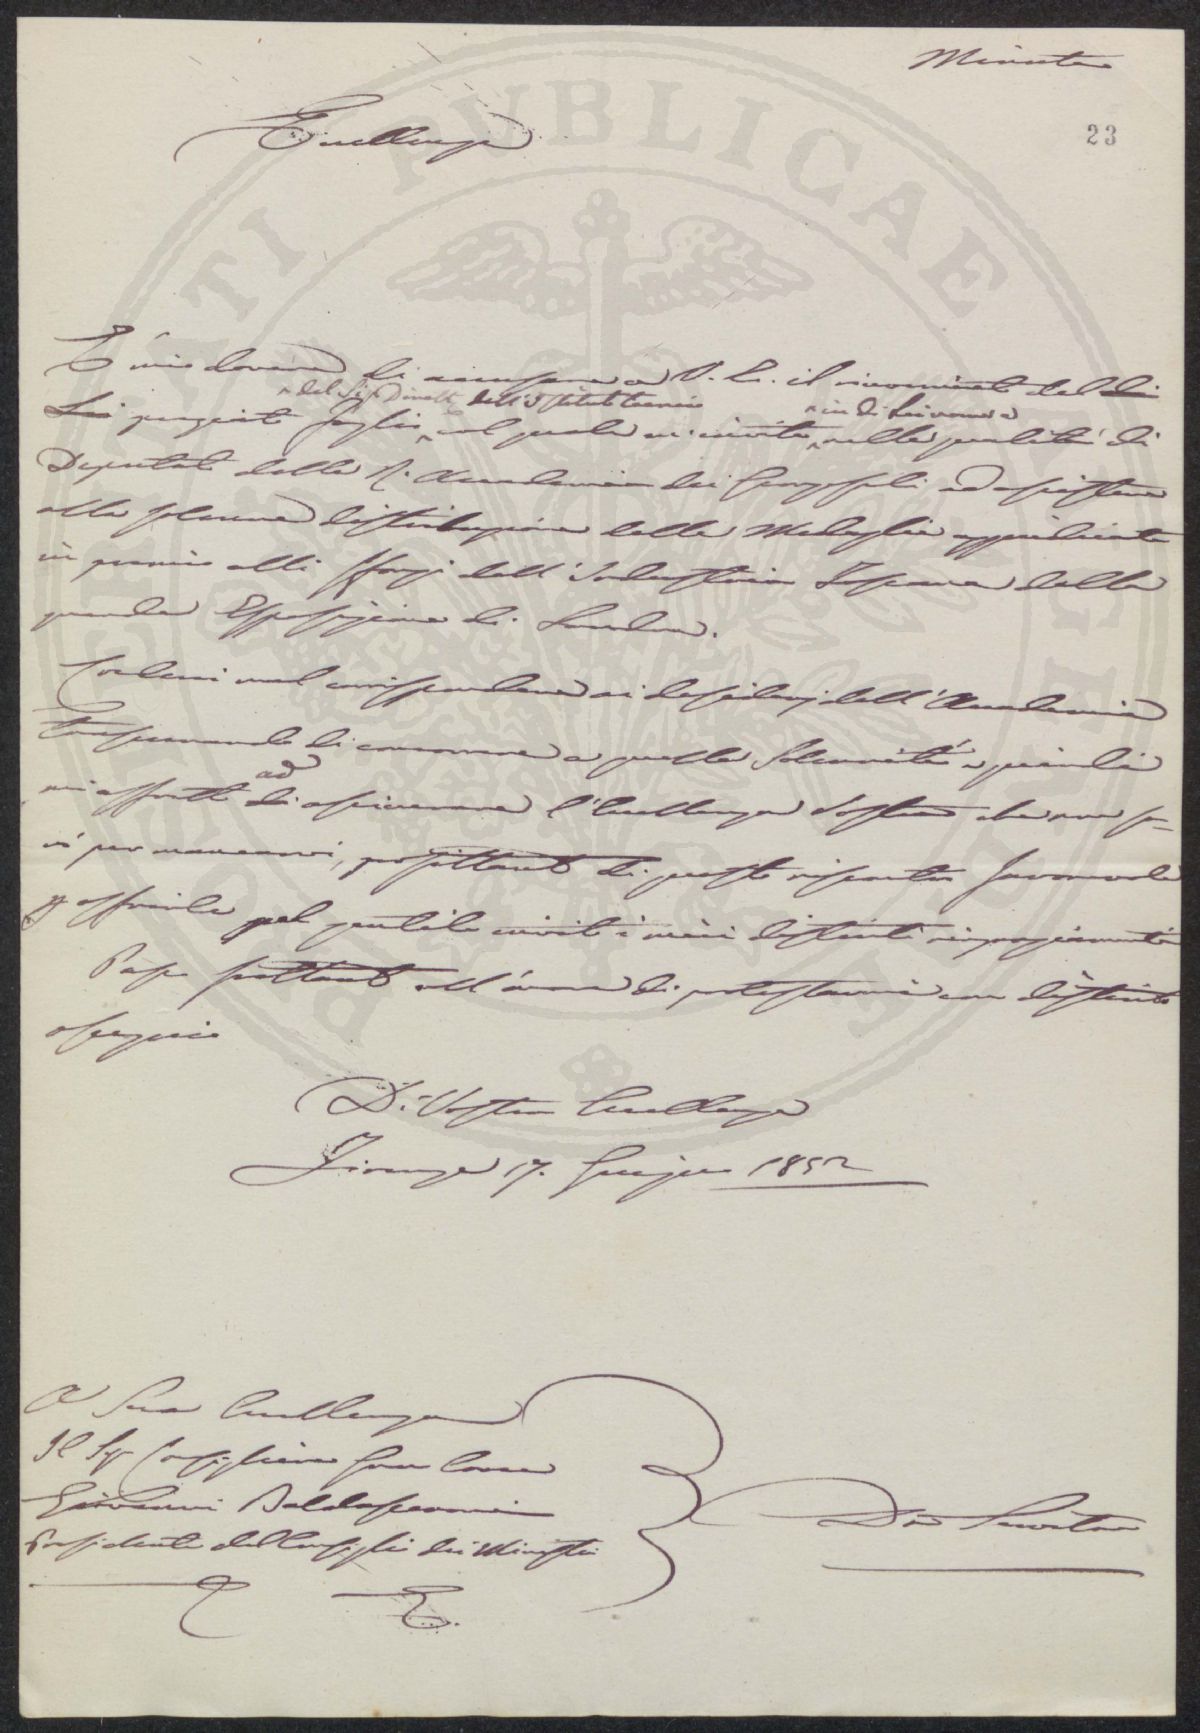 Minuta
23
Eccellenza
È mio dovere di accusare a V. E. il ricevimento del di
^ del Sig. Dirett. dell'Istituto tecnico ^ in di Lei nome
Lei pregiato foglio ^ col quale m'invita ^ nella qualità di
Deputato della R. Accademia dei Georgofili ad assistere
alla solenne distribuzione delle Medaglie aggiudicate
in premio alli sforzi dell'Industria Toscana dalla
grande Esposizione di Londra.
Crederei mal corrispondere ai desiderj dell'Accademia
trascurando di concorrere a quella Solennità, e quindi
ad
mi affretto di assicurare l'Eccellenza Vostra che non sa-
rò per mancarvi, profittando di questo riscontro favorevole
pel gentile invito i miei distinti ringraziamenti
Passo frattanto all'onore di protestarmi con distinto
ossequio
Di Vostra Eccellenza
Firenze 17. Giugno 1852
A Sua Eccellenza
Il Sig. Consigliere Gran Croce
Giovanni Baldasseroni
Presidente del Consiglio dei Ministri
Dev Servitore
POSTERITATI PUBLICAE